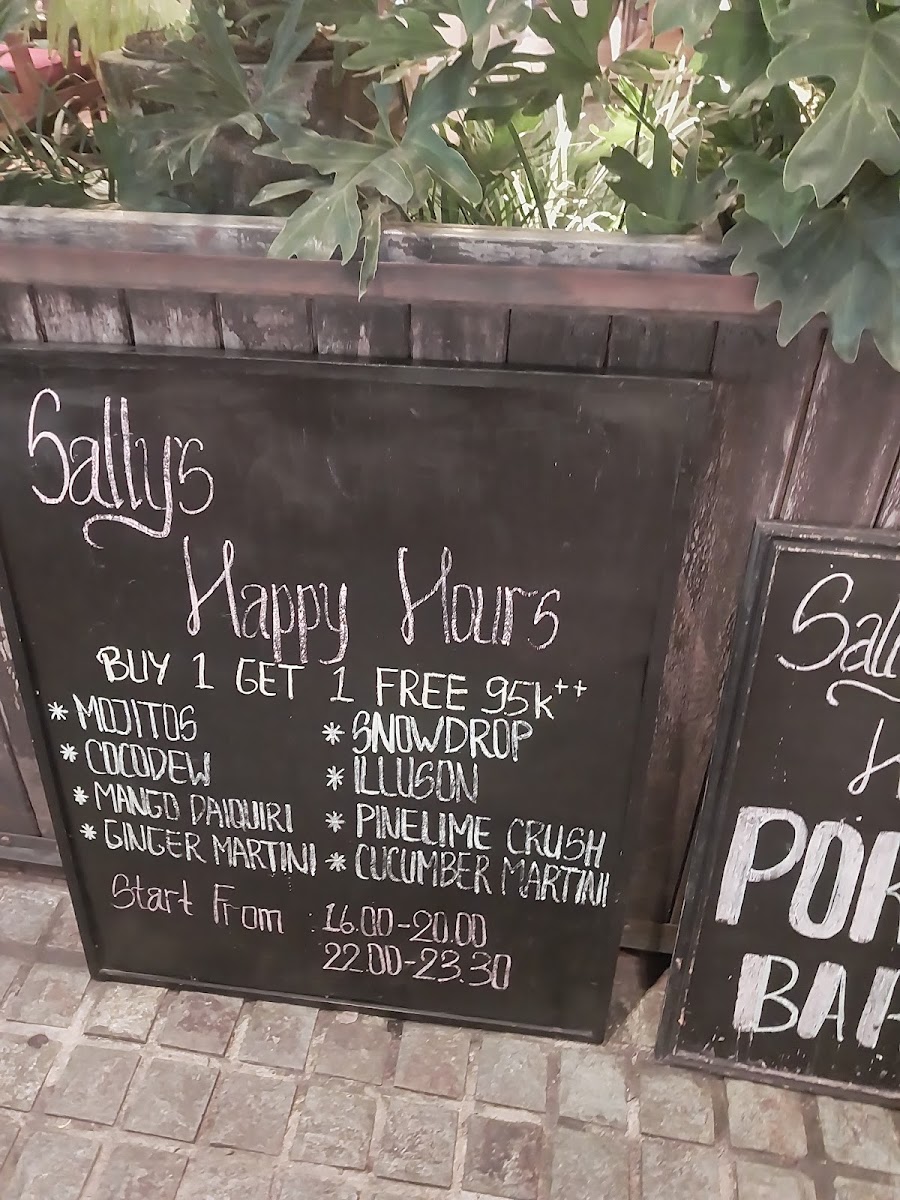 Sally's
Happy Hours
BUY 1 GET 1 FREE 95k++
* MOJITOS
* COCODEW
* MANGO DAIQUIRI
* GINGER MARTINI
* SNOWDROP
* ILLUSON
* PINELIME CRUSH
* CUCUMBER MARTINI
Start From : 16.00-20.00
22.00-23.30